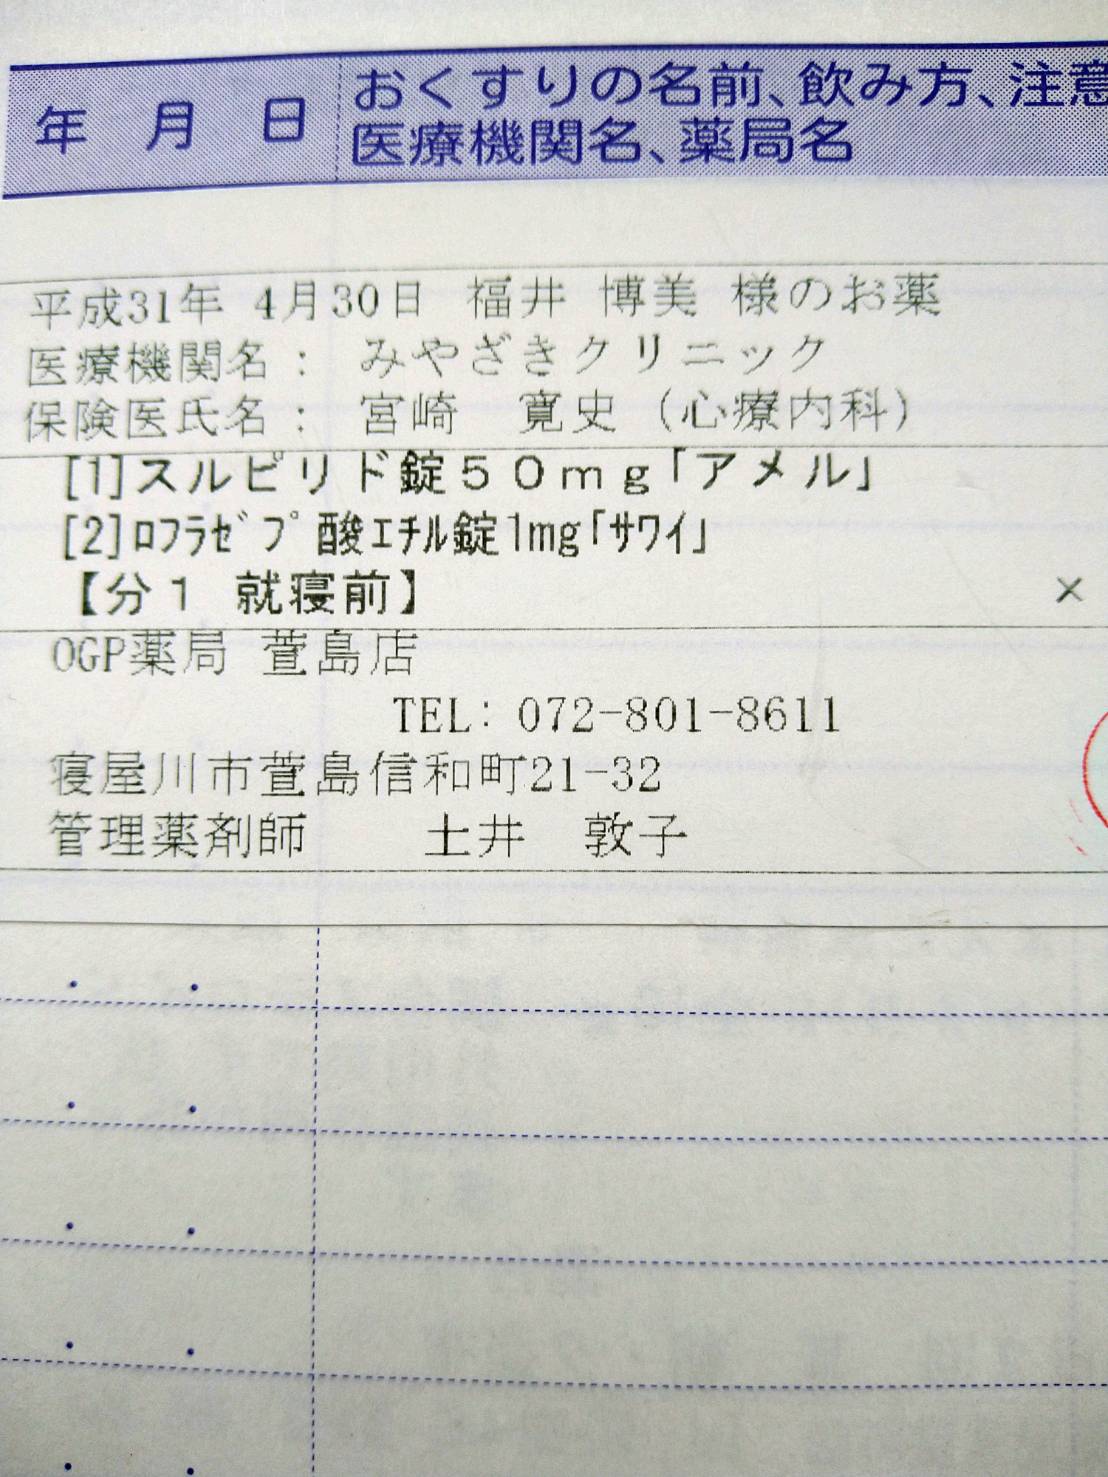 年 月 日
おくすりの名前、飲み方、注意
医療機関名、薬局名
平成31年 4月30日 福井 博美 様のお薬
医療機関名： みやざきクリニック
保険医氏名： 宮崎 寛史（心療内科）
[1]スルピリド錠５０ｍｇ「アメル」
[2]ﾛﾌﾗｾﾞﾌﾟ酸ｴﾁﾙ錠1mg｢ｻﾜｲ｣
【分１ 就寝前】 ×
OGP薬局 萱島店
TEL: 072-801-8611
寝屋川市萱島信和町21-32
管理薬剤師 土井 敦子